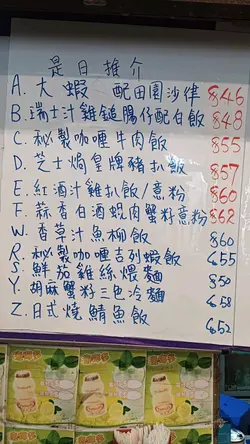 是日推介
A. 大蝦 配田園沙律 $46
B. 瑞士汁雞鎚腸仔配白飯 $48
C. 秘製咖喱牛肉飯 $55
D. 芝士焗皇牌豬扒飯 $57
E. 紅酒汁雞扒飯/意粉 $60
F. 蒜香白酒蜆肉蟹籽意粉 $62
W. 香草汁魚柳飯 $60
R. 秘製咖喱吉列蝦飯 $55
S. 鮮茄雞絲煨麵 $50
Y. 胡麻蟹籽三色冷麵 $58
Z. 日式燒鯖魚飯 $52